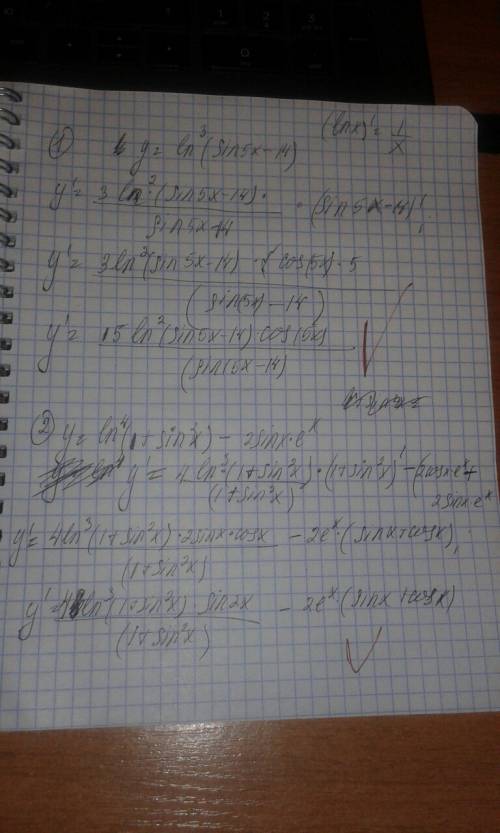 (lnx)' = 1/x
① y = ln³(sin5x-14)
y' = 3 ln²(sin5x-14)· / sin5x-14 · (sin5x-14)',
y' = 3ln²(sin5x-14) · cos(5x) · 5 / (sin(5x)-14)
y' = 15 ln²(sin5x-14) cos(5x) / (sin(5x-14)
② y = ln⁴(1+sin²x) - 2sinx·eˣ
y' = 4ln³(1+sin²x)·(1+sin²x)' / (1+sin²x) - (2cosx·eˣ+
2sinx·eˣ
y' = 4ln³(1+sin²x)·2sinx·cosx / (1+sin²x) - 2eˣ·(sinx+cosx),
y' = 4ln³(1+sin²x) sin2x / (1+sin²x) - 2eˣ·(sinx+cosx)